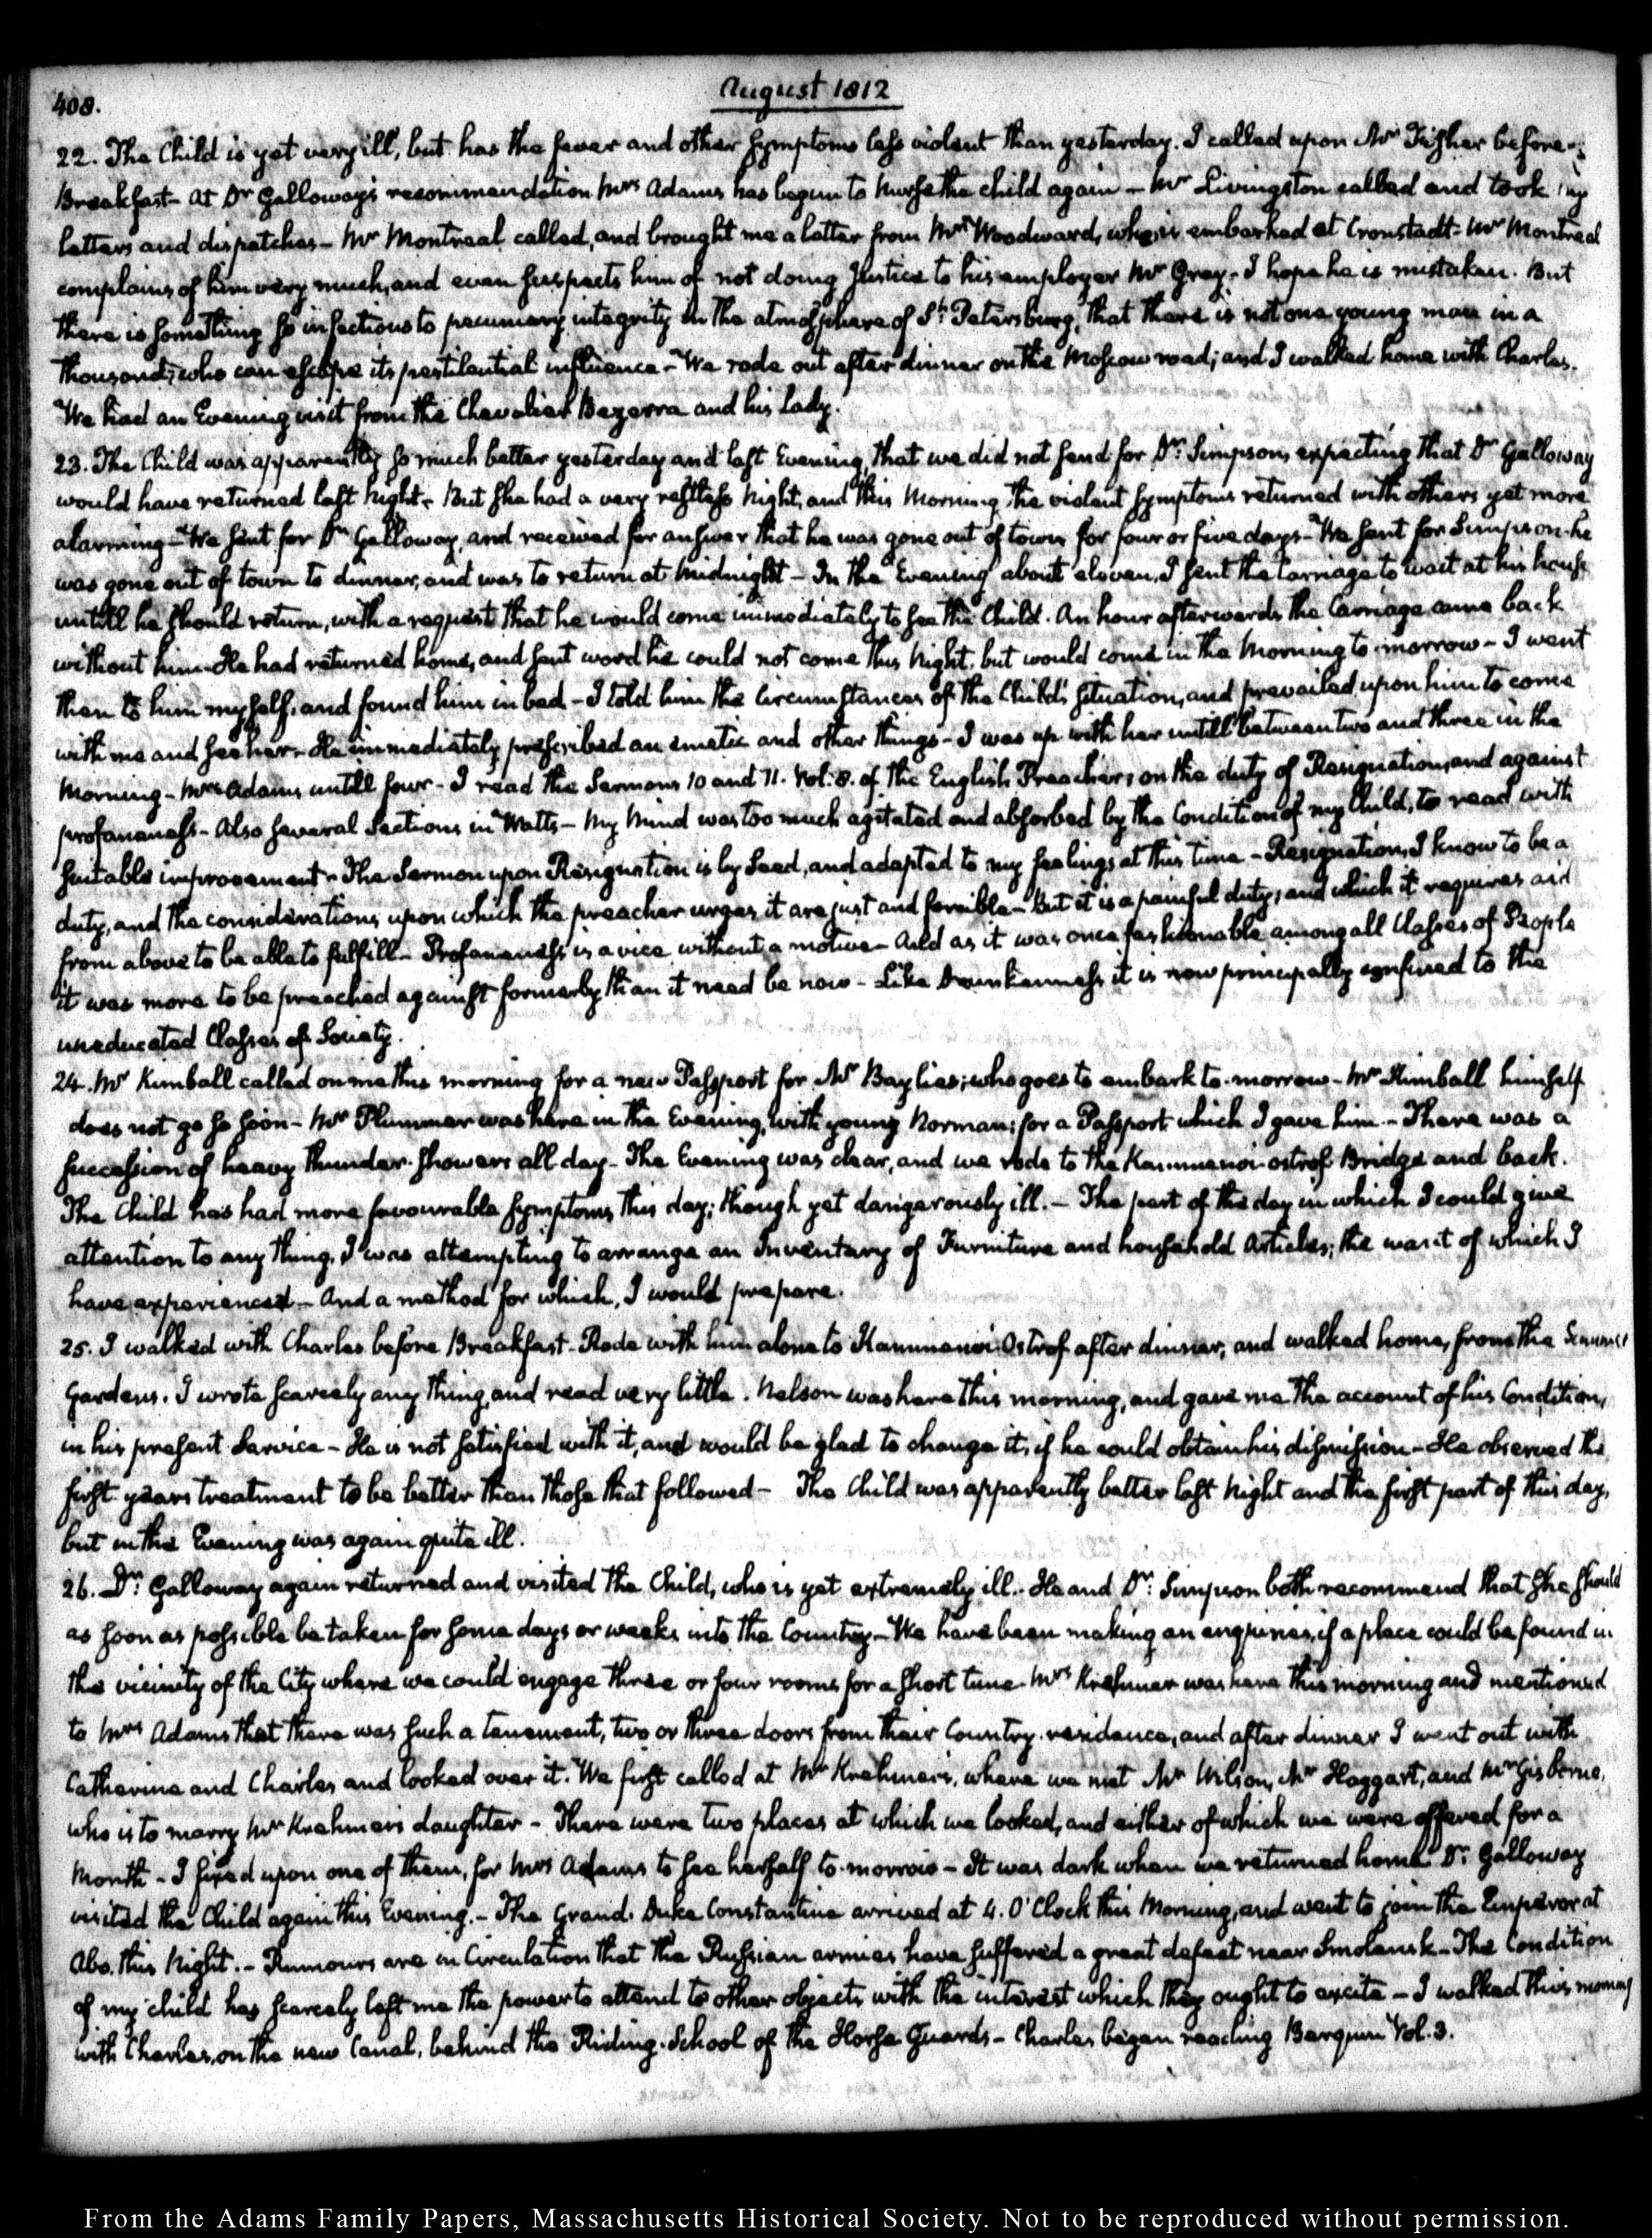 408.
August 1812
22. The Child is yet very ill, but has the fever and other symptoms less violent than yesterday. I called upon Mr Fisher before
Breakfast - At Dr Galloway's recommendation Mrs Adams has begun to nurse the child again - Mr Livingston called and took my
letters and dispatches - Mr Montreal called, and brought me a letter from Mr Woodward, who is embarked at Cronstadt - Mr Montreal
complains of him very much, and even suspects him of not doing Justice to his employer Mr Gray - I hope he is mistaken. But
there is something so infectious to pecuniary integrity in the atmosphere of St Petersburg, that there is not one young man in a
thousand, who can escape its pestilential influence - We rode out after dinner on the Moscow road; and I walked home with Charles.
We had an Evening visit from the Chevalier Bezerra and his Lady.
23. The Child was apparently so much better yesterday and last Evening, that we did not send for Dr: Simpson, expecting that Dr Galloway
would have returned last night - But she had a very restless night, and this Morning the violent symptoms returned with others yet more
alarming - We sent for Dr Galloway, and received for answer that he was gone out of town for four or five days - We sent for Simpson - he
was gone out of town to dinner, and was to return at midnight - In the Evening about eleven, I sent the Carriage to wait at his house
untill he should return, with a request that he would come immediately to see the Child. An hour afterwards the Carriage came back
without him - He had returned home, and sent word he could not come this Night, but would come in the Morning to-morrow - I went
then to him myself, and found him in bed - I told him the circumstances of the Child's situation, and prevailed upon him to come
with me and see her - He immediately prescribed an emetic and other things - I was up with her untill between two and three in the
Morning - Mrs Adams untill four - I read the Sermons 10 and 11. Vol. 8. of the English Preacher; on the duty of Resignation, and against
profaneness - Also several Sections in Watts - My Mind was too much agitated and absorbed by the Condition of my Child, to read with
suitable improvement - The Sermon upon Resignation is by Seed, and adapted to my feelings at this time - Resignation, I know to be a
duty, and the considerations upon which the preacher urges it are just and forcible - But it is a painful duty; and which it requires aid
from above to be able to fulfill - Profaneness is a vice without a motive - And as it was once fashionable among all Classes of People
it was more to be preached against formerly than it need be now - Like Drunkenness it is now principally confined to the
uneducated Classes of Society.
24. Mr Kimball called on me this morning for a new Passport for Mr Baylies; who goes to embark to-morrow - Mr Kimball himself
does not go so soon - Mr Plummer was here in the Evening, with young Norman; for a Passport which I gave him - There was a
succession of heavy thunder-showers all day - The Evening was clear, and we rode to the Kammenoi-ostrof Bridge and back.
The Child has had more favourable symptoms this day; though yet dangerously ill. - The part of the day in which I could give
attention to any thing, I was attempting to arrange an Inventory of Furniture and household Articles; the want of which I
have experienced - And a method for which, I would prepare.
25. I walked with Charles before Breakfast - Rode with him alone to Kammenoi Ostrof after dinner, and walked home, from the Summer
Gardens. I wrote scarcely any thing, and read very little. Nelson was here this morning, and gave me the account of his Condition,
in his present Service - He is not satisfied with it, and would be glad to change it, if he could obtain his dismission - He observed the
first years treatment to be better than those that followed - The Child was apparently better last Night and the first part of this day,
but in the Evening was again quite ill.
26. Dr: Galloway again returned and visited the Child, who is yet extremely ill. He and Dr: Simpson both recommend that she should
as soon as possible be taken for some days or weeks into the Country - We have been making an enquiries, if a place could be found in
the vicinity of the City where we could engage three or four rooms for a short time. Mrs Krehmer was here this morning and mentioned
to Mrs Adams that there was such a tenement, two or three doors from their Country residence, and after dinner I went out with
Catherine and Charles and looked over it. We first called at Mr Krehmer's, where we met Mr Wilson, Mr Haggart, and Mr Gisborne,
who is to marry Mr Krehmer's daughter - There were two places at which we looked, and either of which we were offered for a
Month - I fixed upon one of them, for Mrs Adams to see herself to-morrow - It was dark when we returned home Dr: Galloway
visited the Child again this Evening. - The Grand Duke Constantine arrived at 4. O'Clock this Morning, and went to join the Emperor at
Abo. this Night. - Rumours are in Circulation that the Russian armies have suffered a great defeat near Smolensk - The Condition
of my child has scarcely left me the power to attend to other objects with the interest which they ought to excite - I walked this morning
with Charles, on the new Canal, behind the Riding-School of the Horse Guards - Charles began reading Berquin Vol. 3.
From the Adams Family Papers, Massachusetts Historical Society. Not to be reproduced without permission.